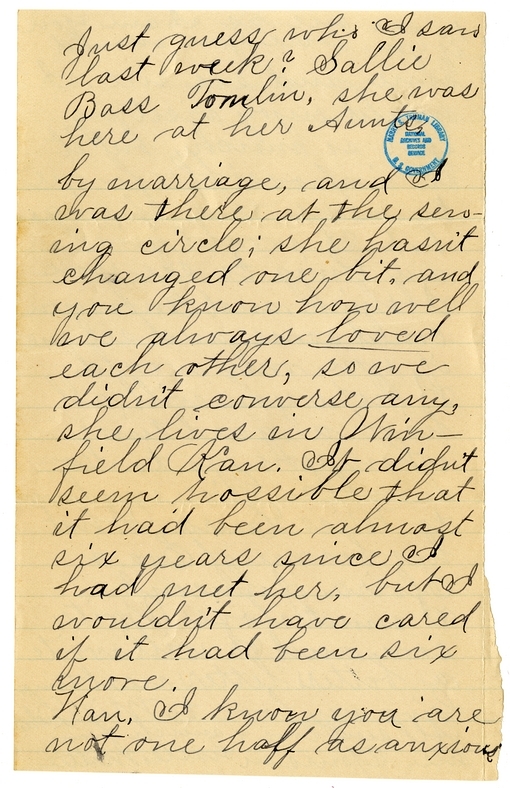 Just guess who I saw
last week? Sallie
Bass Tomlin, she was
here at her Aunts,
HARRY S. TRUMAN LIBRARY
NATIONAL
ARCHIVES AND
RECORDS
SERVICE
U. S. GOVERNMENT
by marriage, and I
was there at the sew-
ing circle; she hasn't
changed one bit, and
you know how well
we always loved
each other, so we
didn't converse any,
she lives in Win-
field Kan. It didn't
seem possible that
it had been almost
six years since I
had met her, but I
wouldn't have cared
if it had been six
more.
Nan, I know you are
not one half as anxious